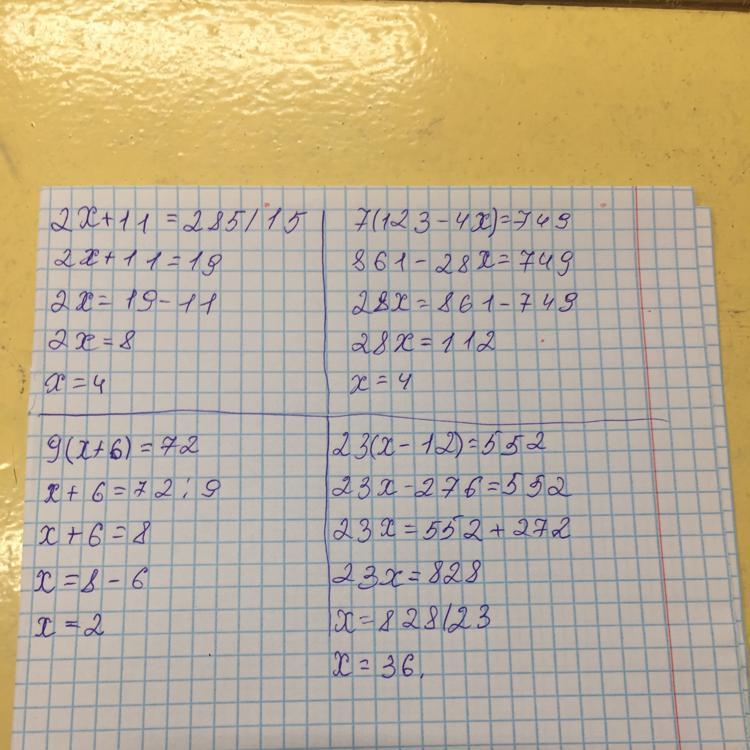 2x+11=285/15
2x+11=19
2x=19-11
2x=8
x=4
7(123-4x)=749
861-28x=749
28x=861-749
28x=112
x=4
9(x+6)=72
x+6=72:9
x+6=8
x=8-6
x=2
23(x-12)=552
23x-276=552
23x=552+272
23x=828
x=828/23
x=36.